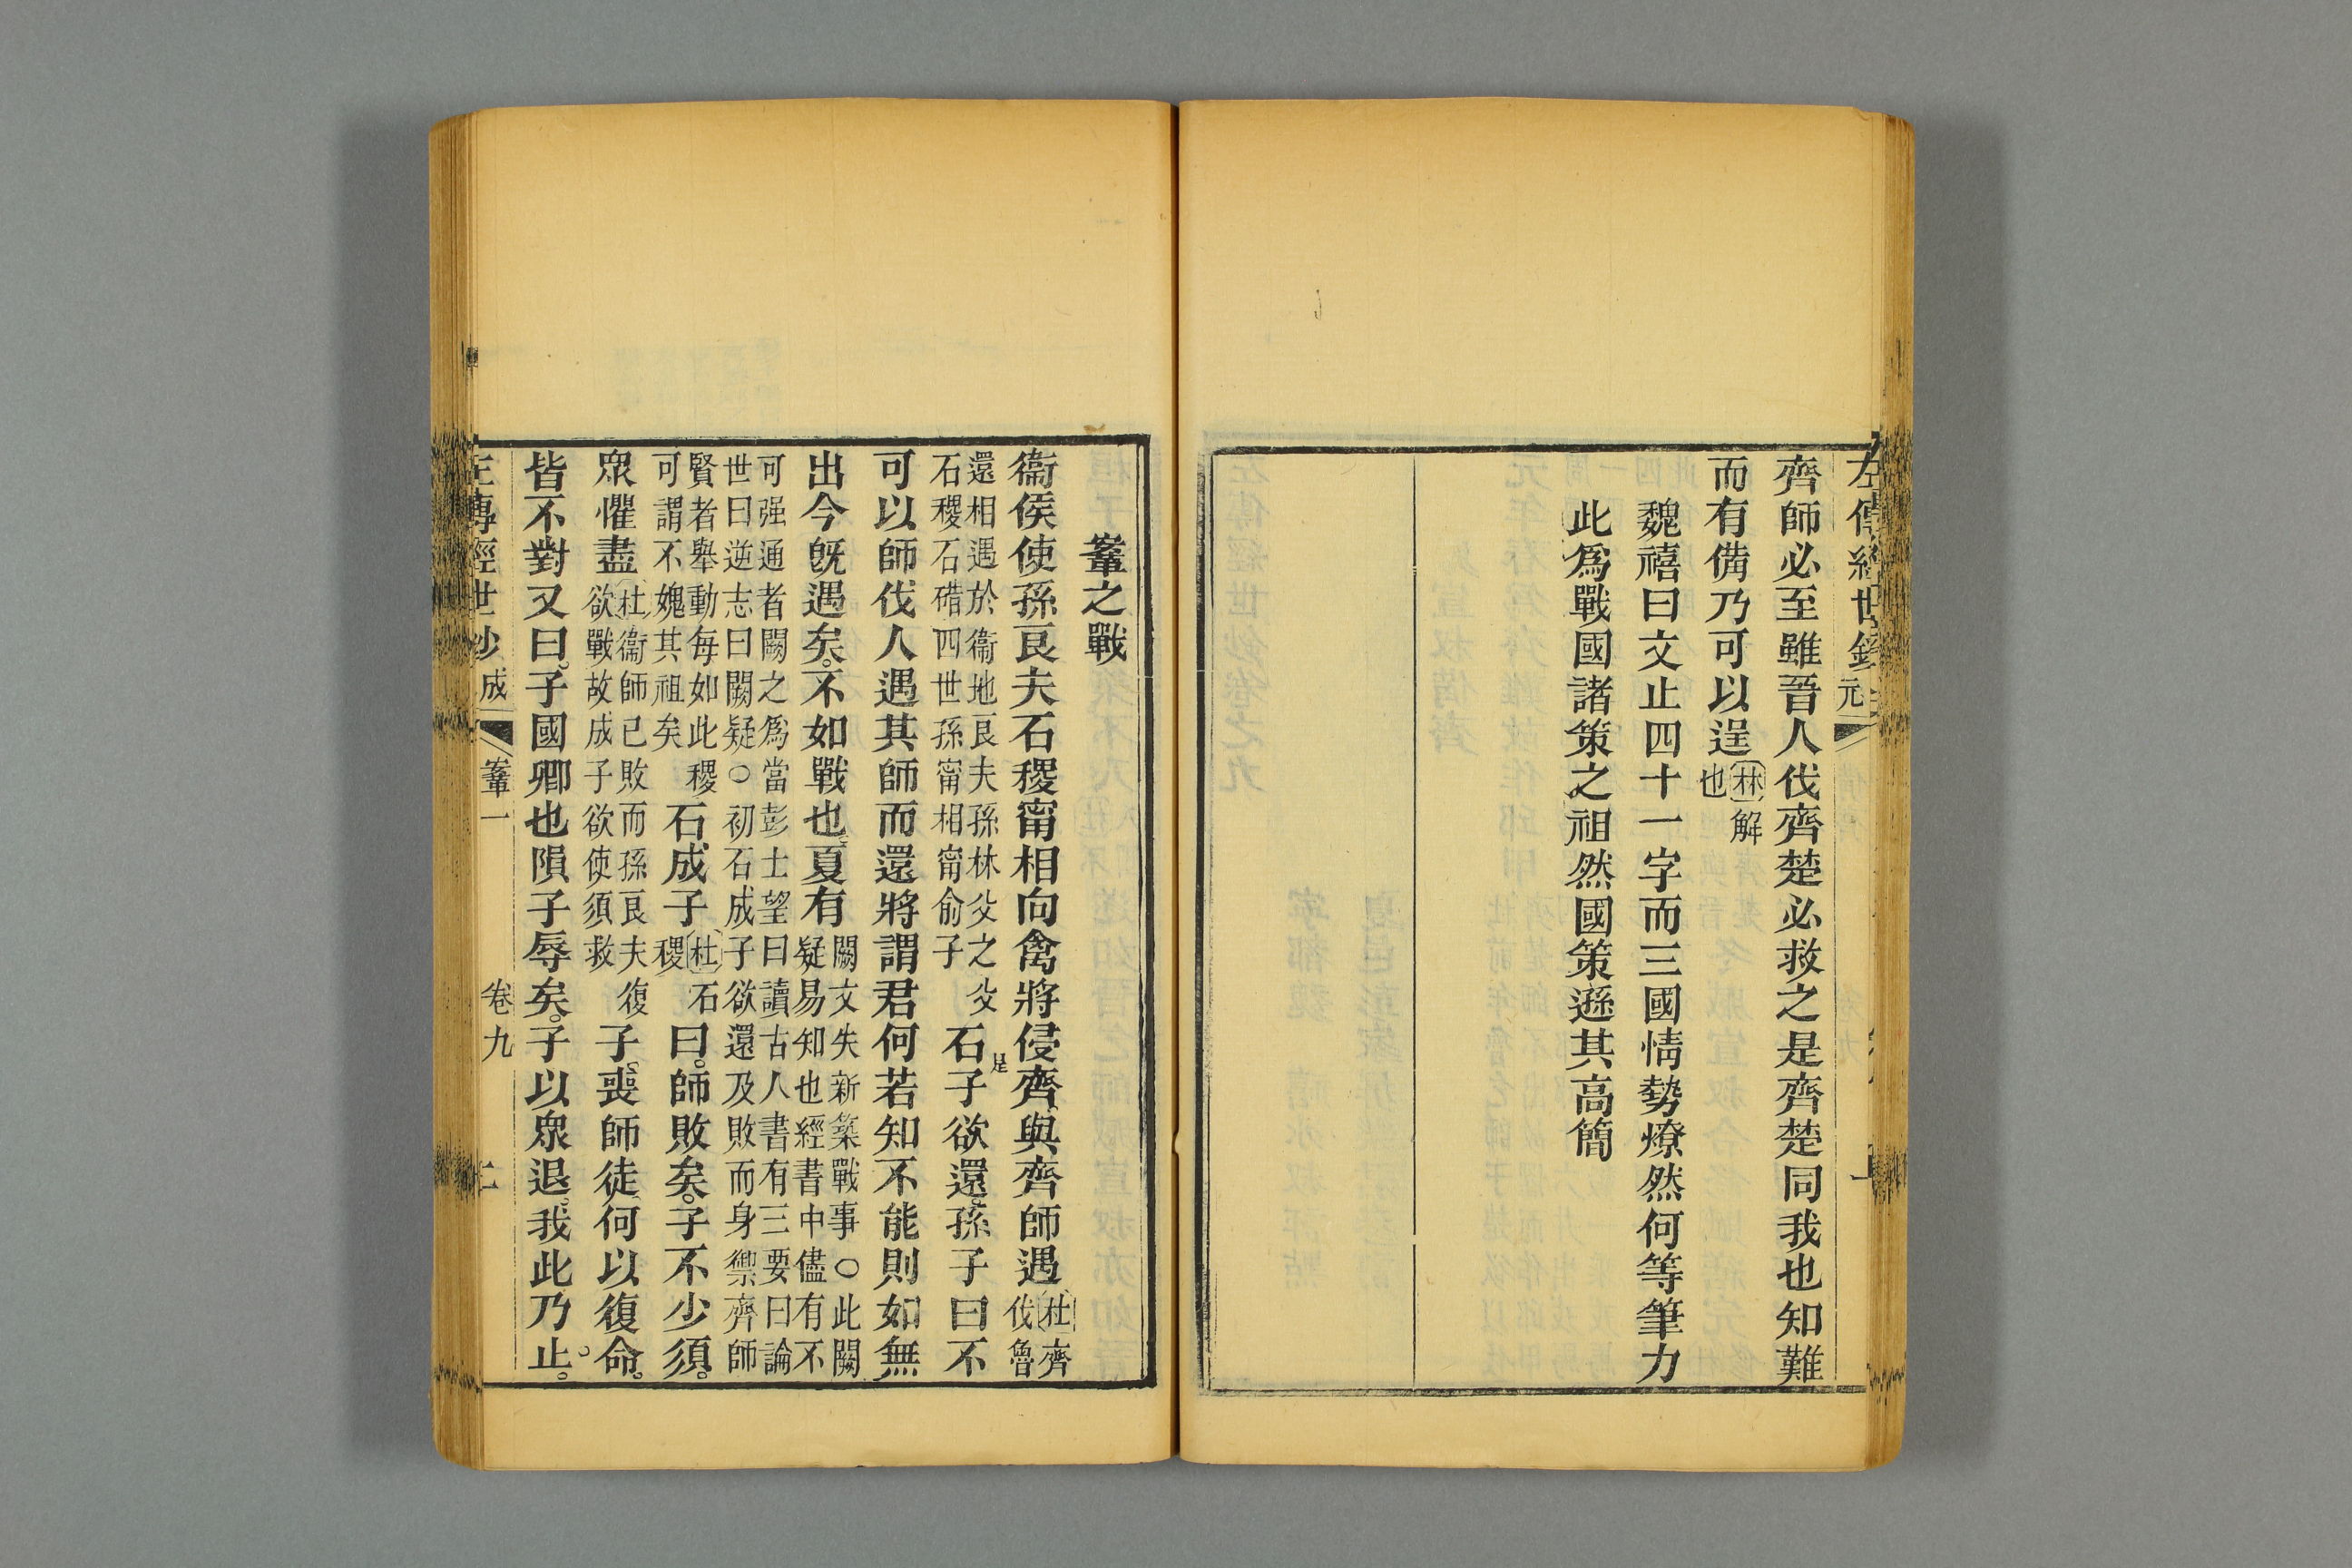 左傳經世鈔 元
齊師必至雖晉人伐齊楚必救之是齊楚同我也知難
而有備乃可以逞林解也
魏禧曰文止四十一字而三國情勢燎然何等筆力
此爲戰國諸策之祖然國策遜其高簡
鞌之戰
衞侯使孫良夫石稷甯相向禽將侵齊與齊師遇杜齊伐魯
還相遇於衞地良夫孫林父之父石稷石碏四世孫甯相甯俞子石子欲還。孫子曰不
可以師伐人遇其師而還將謂君何若知不能則如無
出今旣遇矣。不如戰也。夏有闕文失新築戰事○此闕疑易知也經書中儘有不
可强通者闕之爲當彭士望曰讀古人書有三要曰論世曰逆志曰闕疑○初石成子欲還及敗而身禦齊師
賢者舉動每如此稷可謂不媿其祖矣石成子杜石稷曰。師敗矣。子不少須。
眾懼盡杜衞師已敗而孫良夫復欲戰故成子欲使須救子喪師徒何以復命。
皆不對又曰。子國卿也隕子辱矣。子以眾退我此乃止。
左傳經世鈔 成 鞌一 卷九